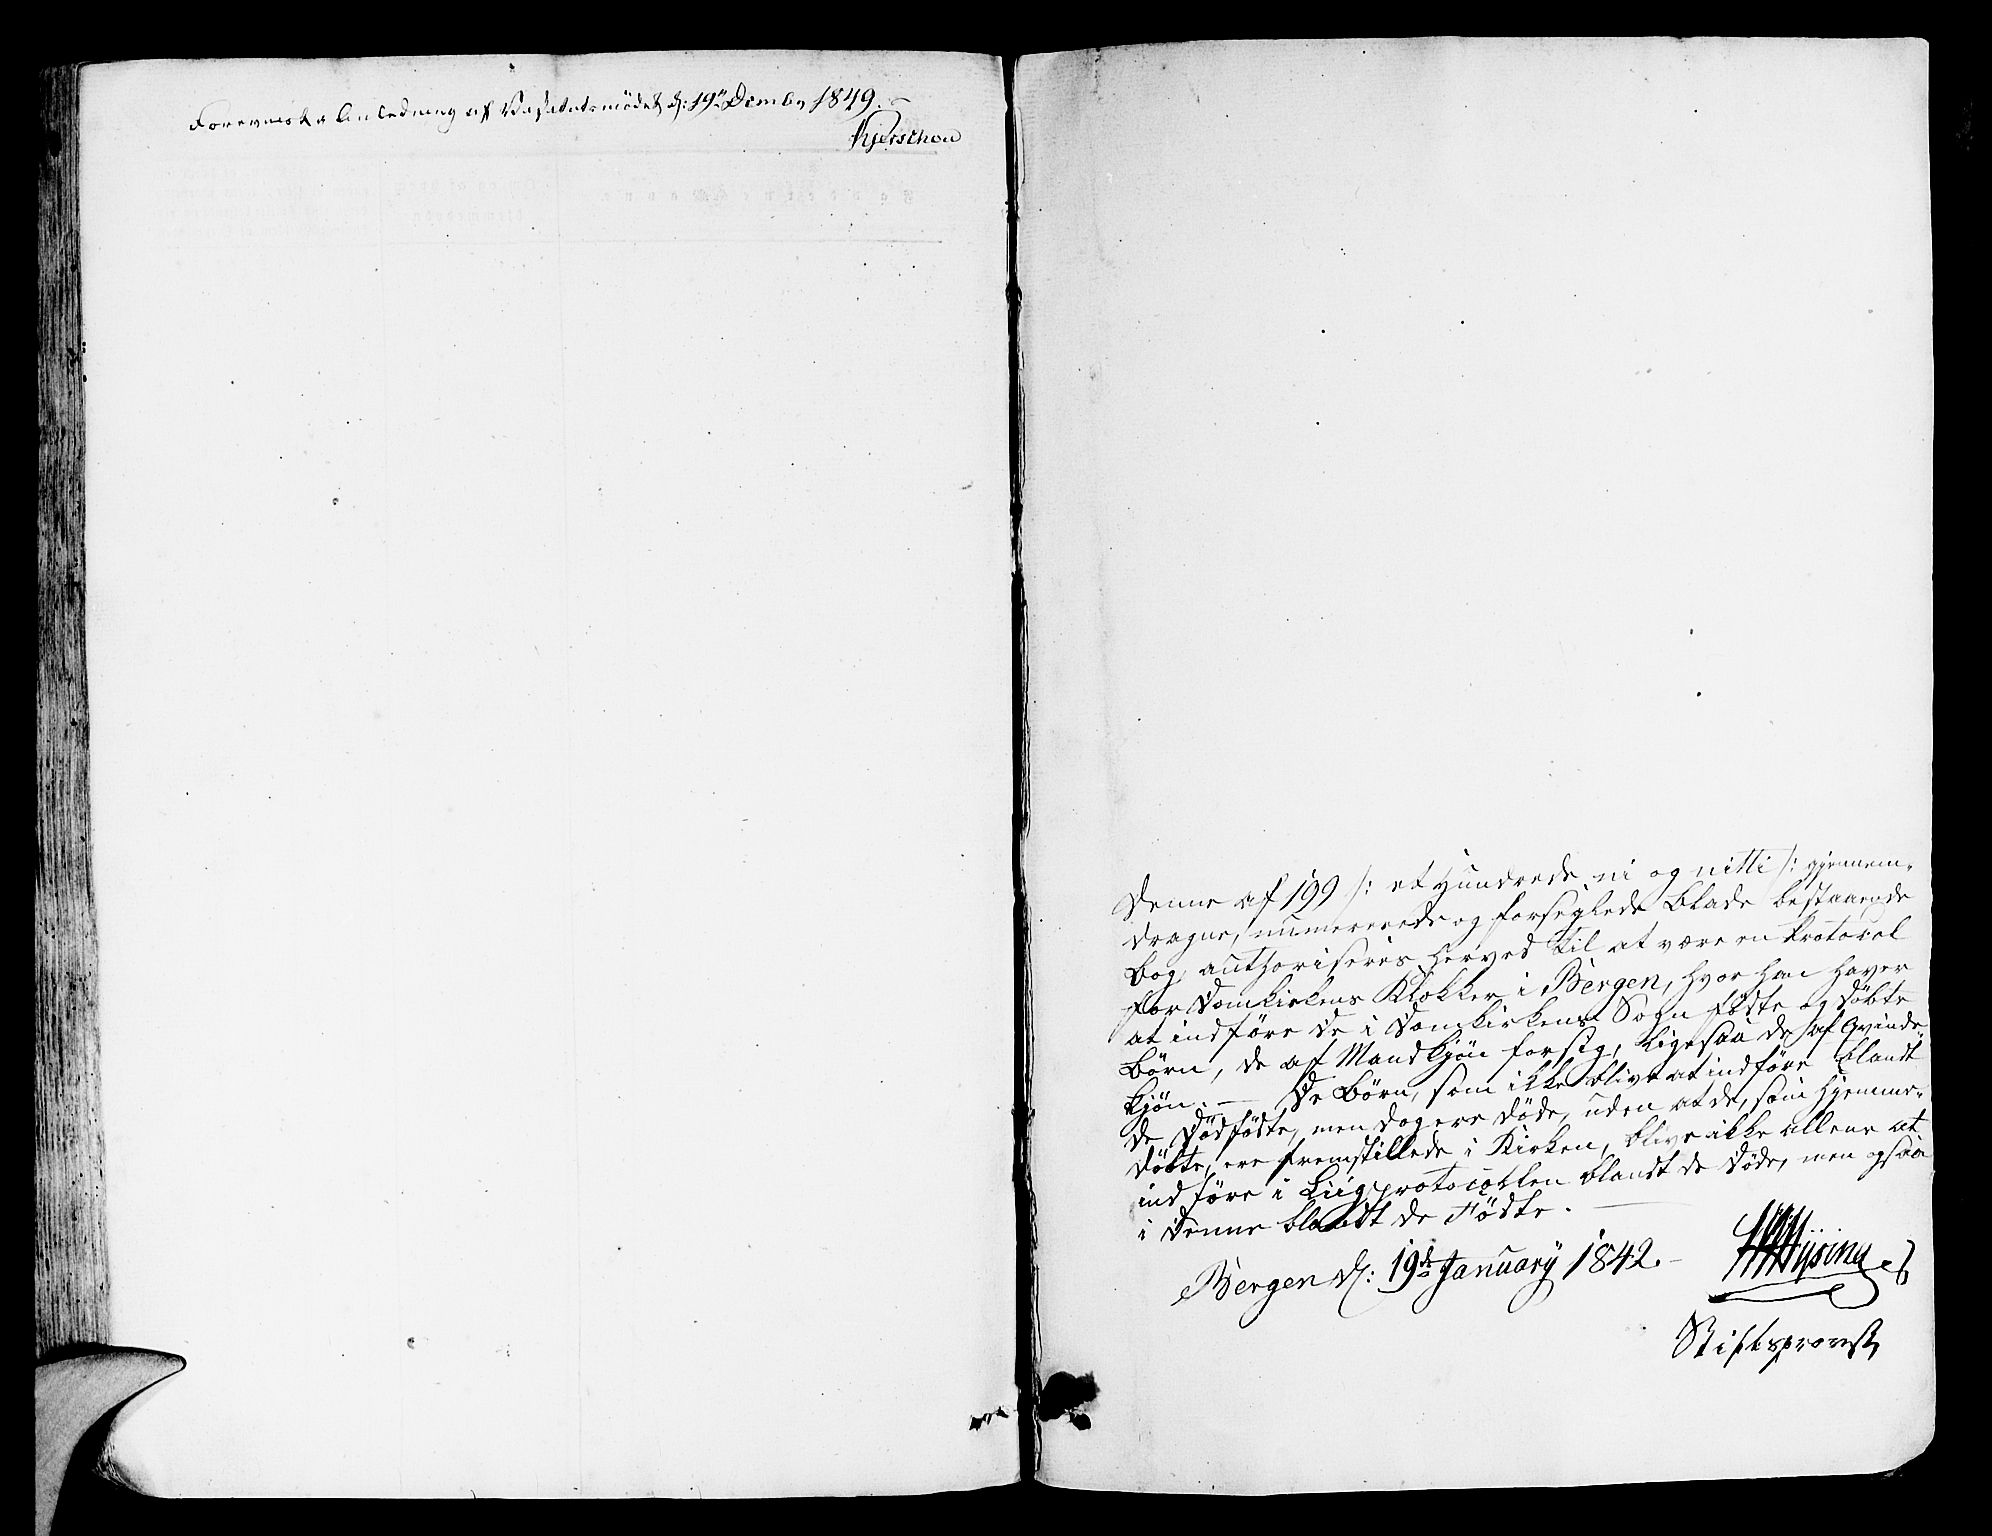 Foreviist i Anledning af Visitatsmödet d: 19de Decmbr 1849.
Kjerschou
Denne af 199 /: et Hundrede ni og nitti :/ gjennem-
dragne, numererede og forseglede Blade bestaaende
Bog authoriseres herved til at være en Protocol
for Domkirkens Klokker i Bergen, hvor han haver
at indføre de i Domkirkens Sogn fødte og døbte
Børn, de af Mandkjøn for sig, ligesaa de af Qvinde-
kjøn. — De Børn, som ikke blive at indføre blandt
de Dødfødte, men dog ere døde, uden at de, som hjemme-
døbte, ere fremstillede i Kirken, blive ikke allene at
indføre i Liigprotocollen blandt de Døde, men ogsaa
i Denne blandt de Fødte. —
Bergen d: 19de January 1842. —
Hysing
Stiftsprovst